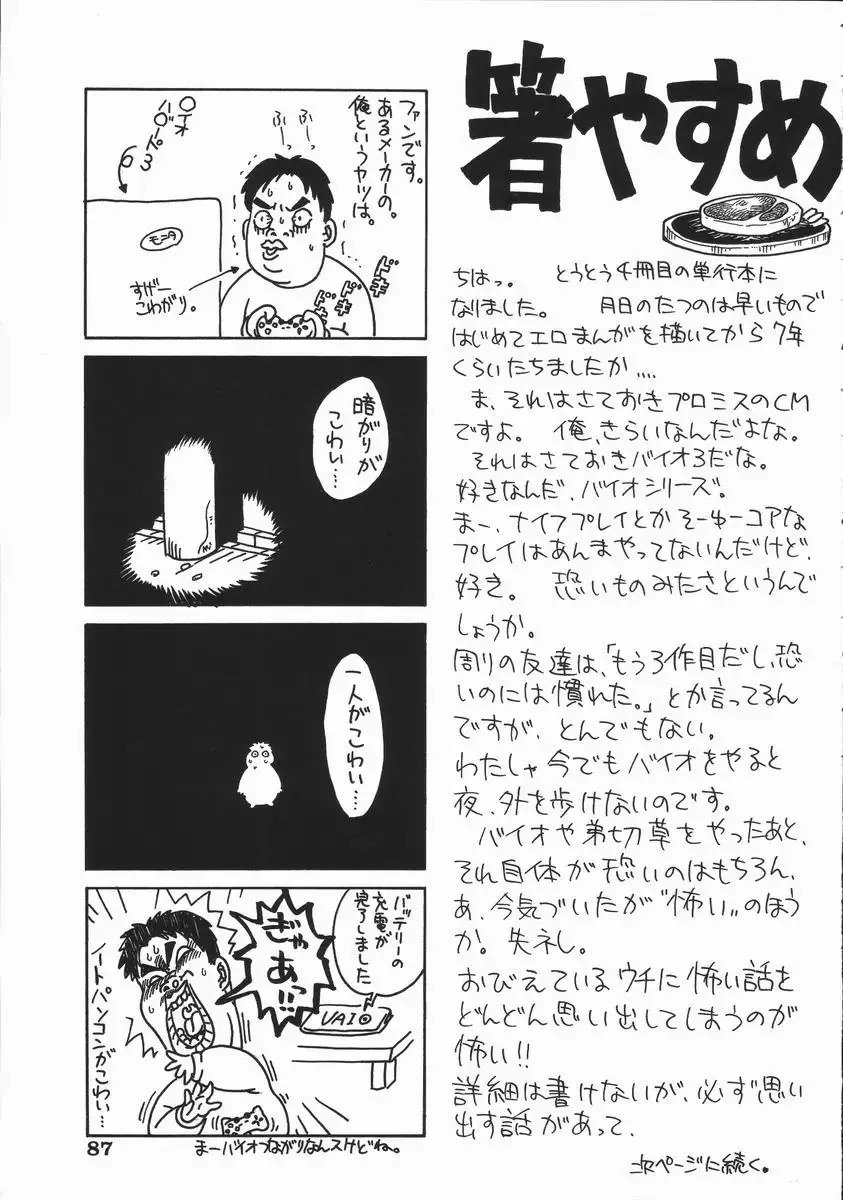 箸やすめ
ちはっ。 とうとう4冊目の単行本に
なりました。 月日のたつのは早いもので
はじめてエロまんがを描いてから7年
くらいたちましたか....
ま、それはさておきプロミスのCM
ですよ。 俺、きらいなんだよな。
それはさておきバイオ3だな。
好きなんだ、バイオシリーズ。
まー、ナイフプレイとかそーゆーコアな
プレイはあんまやってないんだけど、
好き。 恐いものみたさというんで
しょうか。
周りの友達は、「もう3作目だし、恐
いのには慣れた。」とか言ってるん
ですが、とんでもない。
わたしゃ今でもバイオをやると
夜、外を歩けないのです。
バイオや弟切草をやったあと、
それ自体が恐いのはもちろん、
あ、今気づいたが“怖い”のほう
か。失ネし。
おびえているウチに怖い話を
どんどん思い出してしまうのが
怖い!!
詳細は書けないが、必ず思い
出す話があって、
次ページに続く。
俺というヤツは。
あるメーカーの。
ファンです。
ふーっ
ふーっ
モニタ
すげー
こわがり。
ドキ
ドキ
ドキ
暗がりが
こわい…
一人がこわい…
バッテリーの
充電が
完了しました
ぎゃあっ!!
VAIO
イートパソコンがこわい…
まーバイオつながりなんスけどね。
87